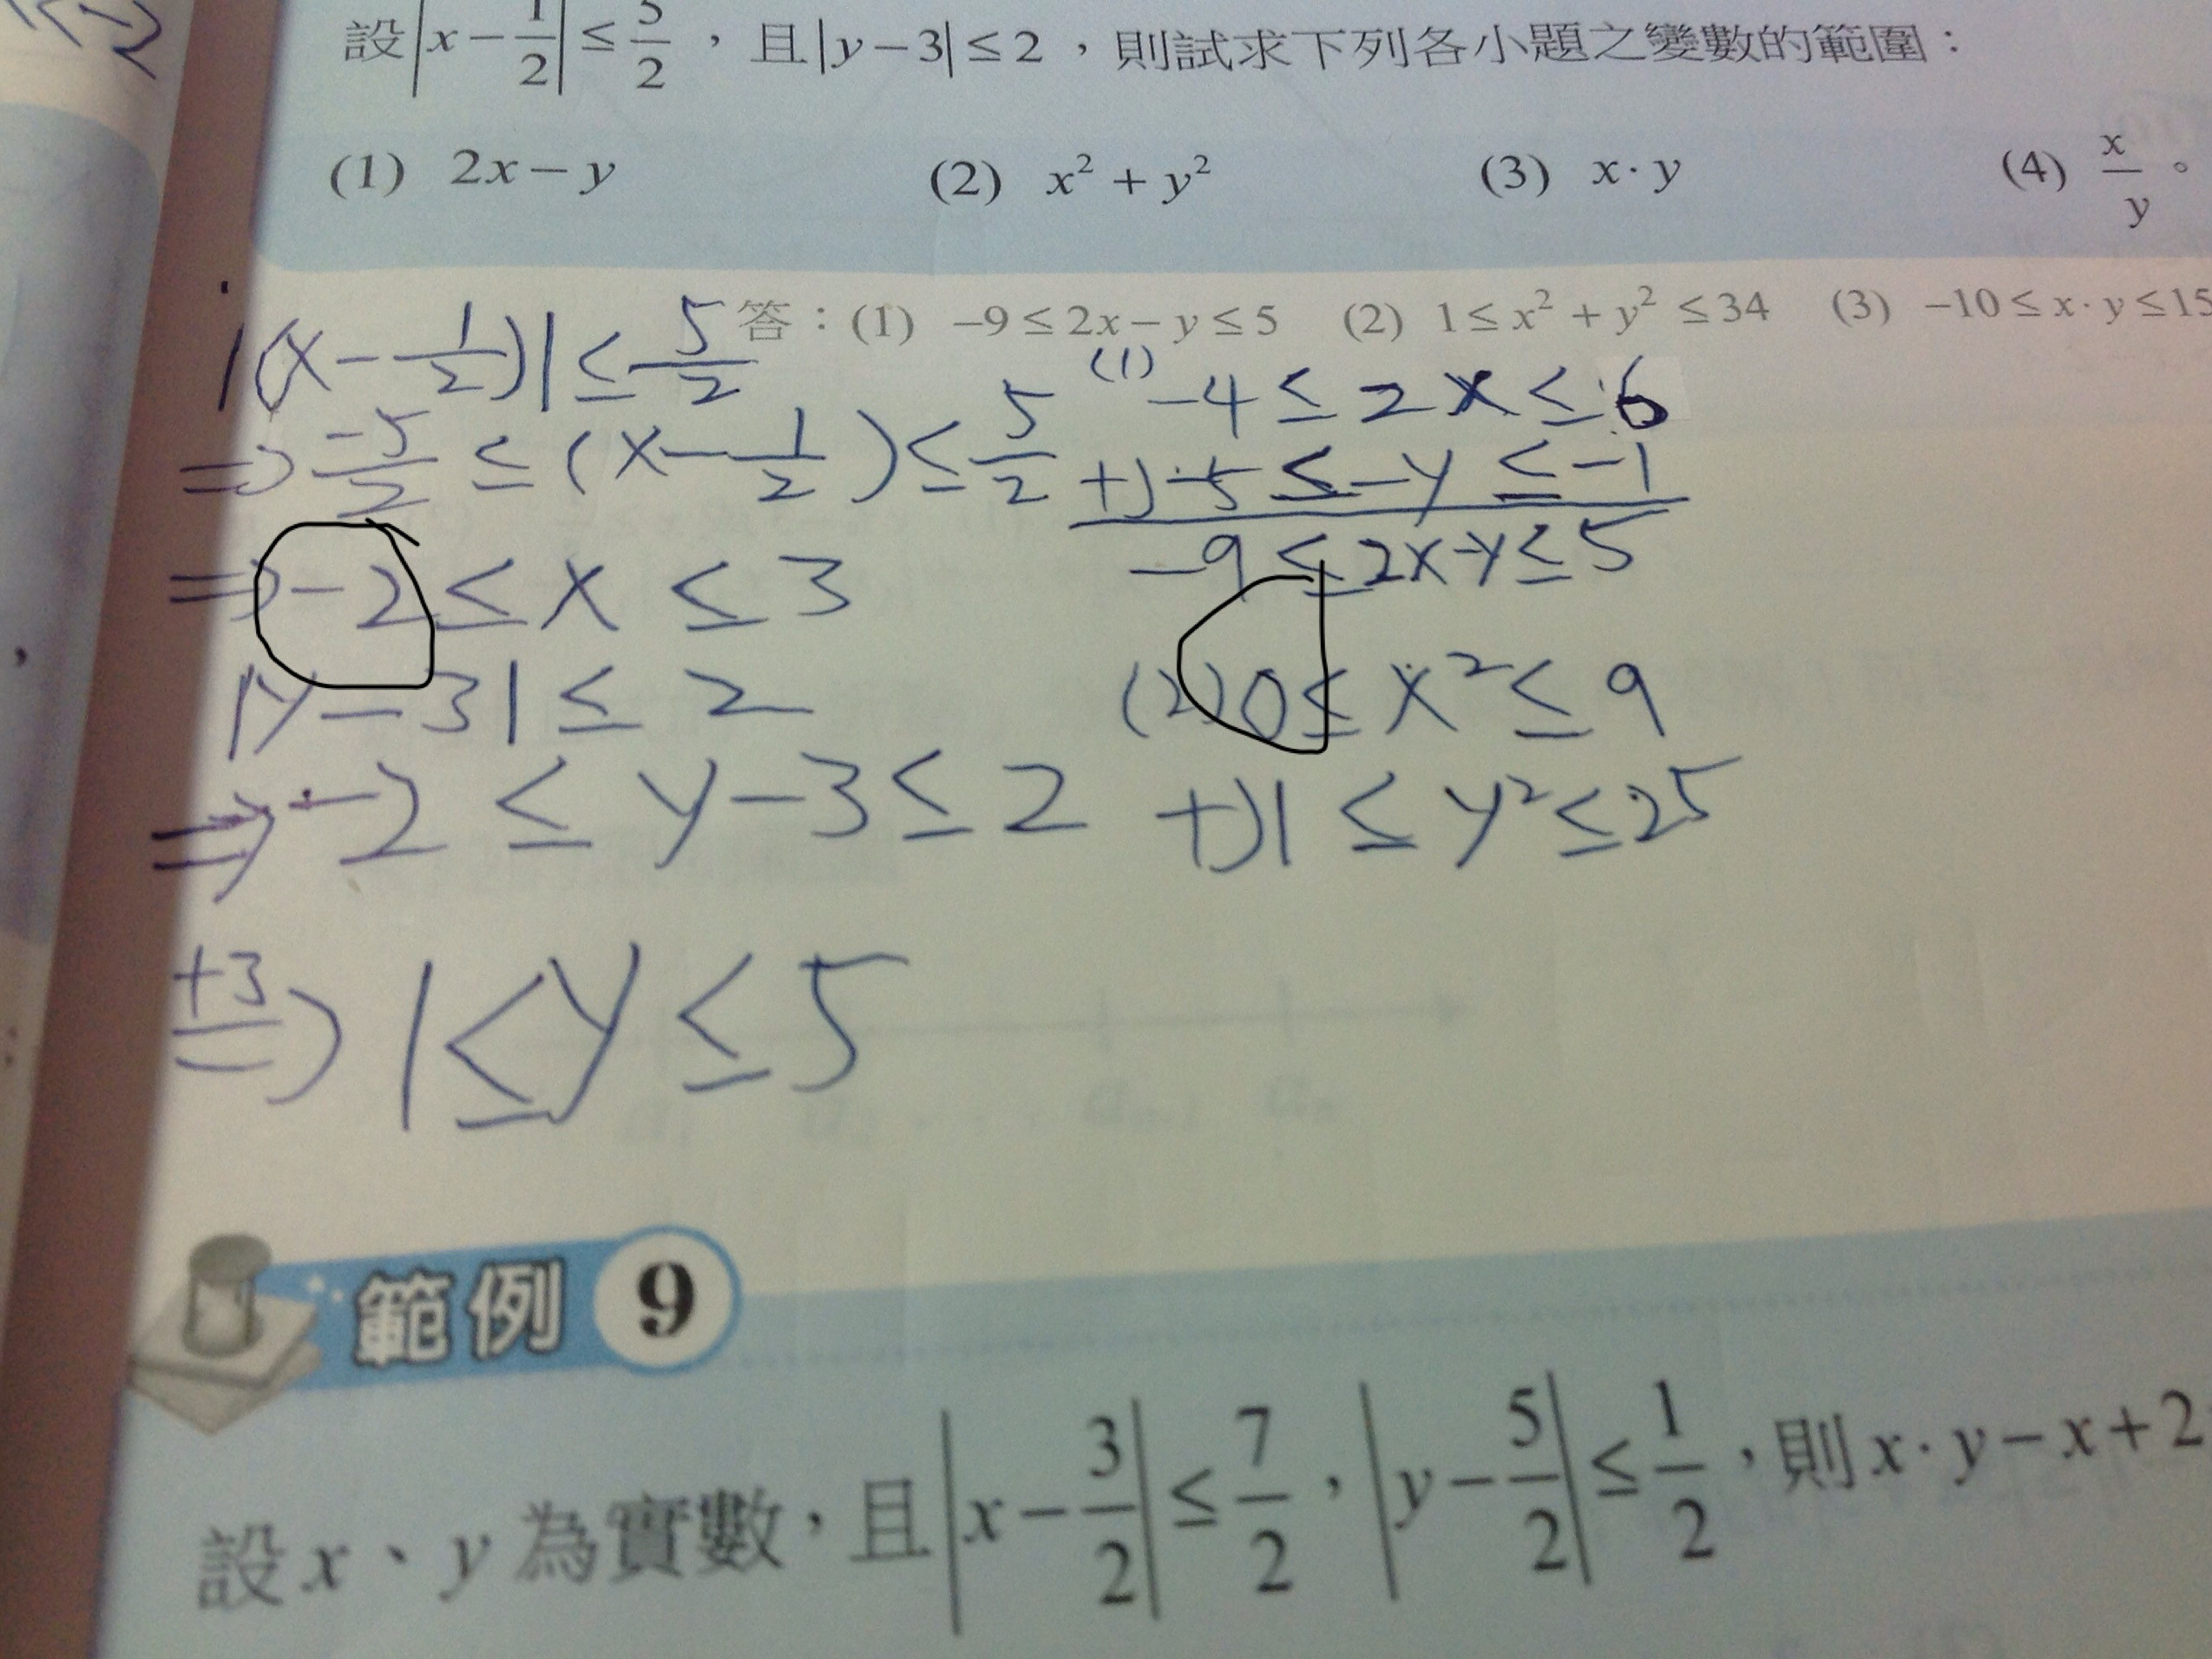 設|x − 1/2| ≤ 5/2，且|y−3| ≤ 2，則試求下列各小題之變數的範圍：
(1) 2x−y (2) x² + y² (3) x·y (4) x/y。
答：(1) −9 ≤ 2x−y ≤ 5 (2) 1 ≤ x² + y² ≤ 34 (3) −10 ≤ x·y ≤ 15
|(x−1/2)| ≤ 5/2
⇒ −5/2 ≤ (x−1/2) ≤ 5/2
⇒ −2 ≤ x ≤ 3
|y−3| ≤ 2
⇒ −2 ≤ y−3 ≤ 2
+3⇒ 1 ≤ y ≤ 5
(1) −4 ≤ 2x ≤ 6
+) −5 ≤ −y ≤ −1
−9 ≤ 2x−y ≤ 5
(2) 0 ≤ x² ≤ 9
+) 1 ≤ y² ≤ 25
範例 9
設x、y為實數，且|x − 3/2| ≤ 7/2，|y − 5/2| ≤ 1/2，則x·y−x+2